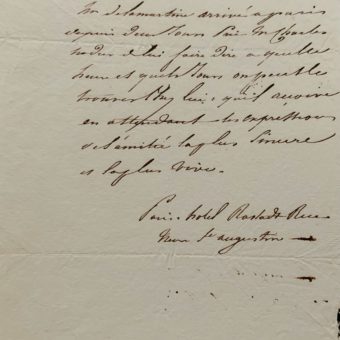 Mr de lamartine arrivé a paris
depuis deux jours prie Mr Charles
nodier de lui faire dire a quelle
heure et quels jours on peut le
trouver chez lui: qu'il
en attendant les expressions
de l'amitié la plus sincere
et la plus vive.
Paris. hotel Rastadt Rue
neuve St augustin